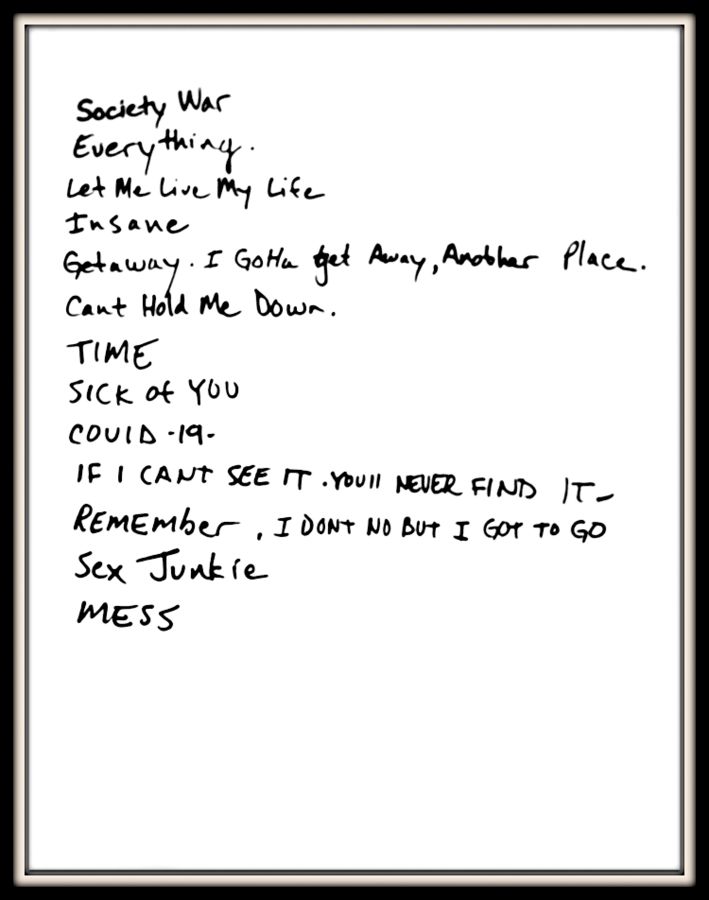 Society War
Everything.
Let Me Live My Life
Insane
Getaway. I Gotta get Away, Another Place.
Cant Hold Me Down.
TIME
SICK of YOU
COVID -19-
IF I CANT SEE IT. YOU'll NEVER FIND IT-
REMEMber, I DONT NO BUT I GOT TO GO
Sex Junkie
MESS